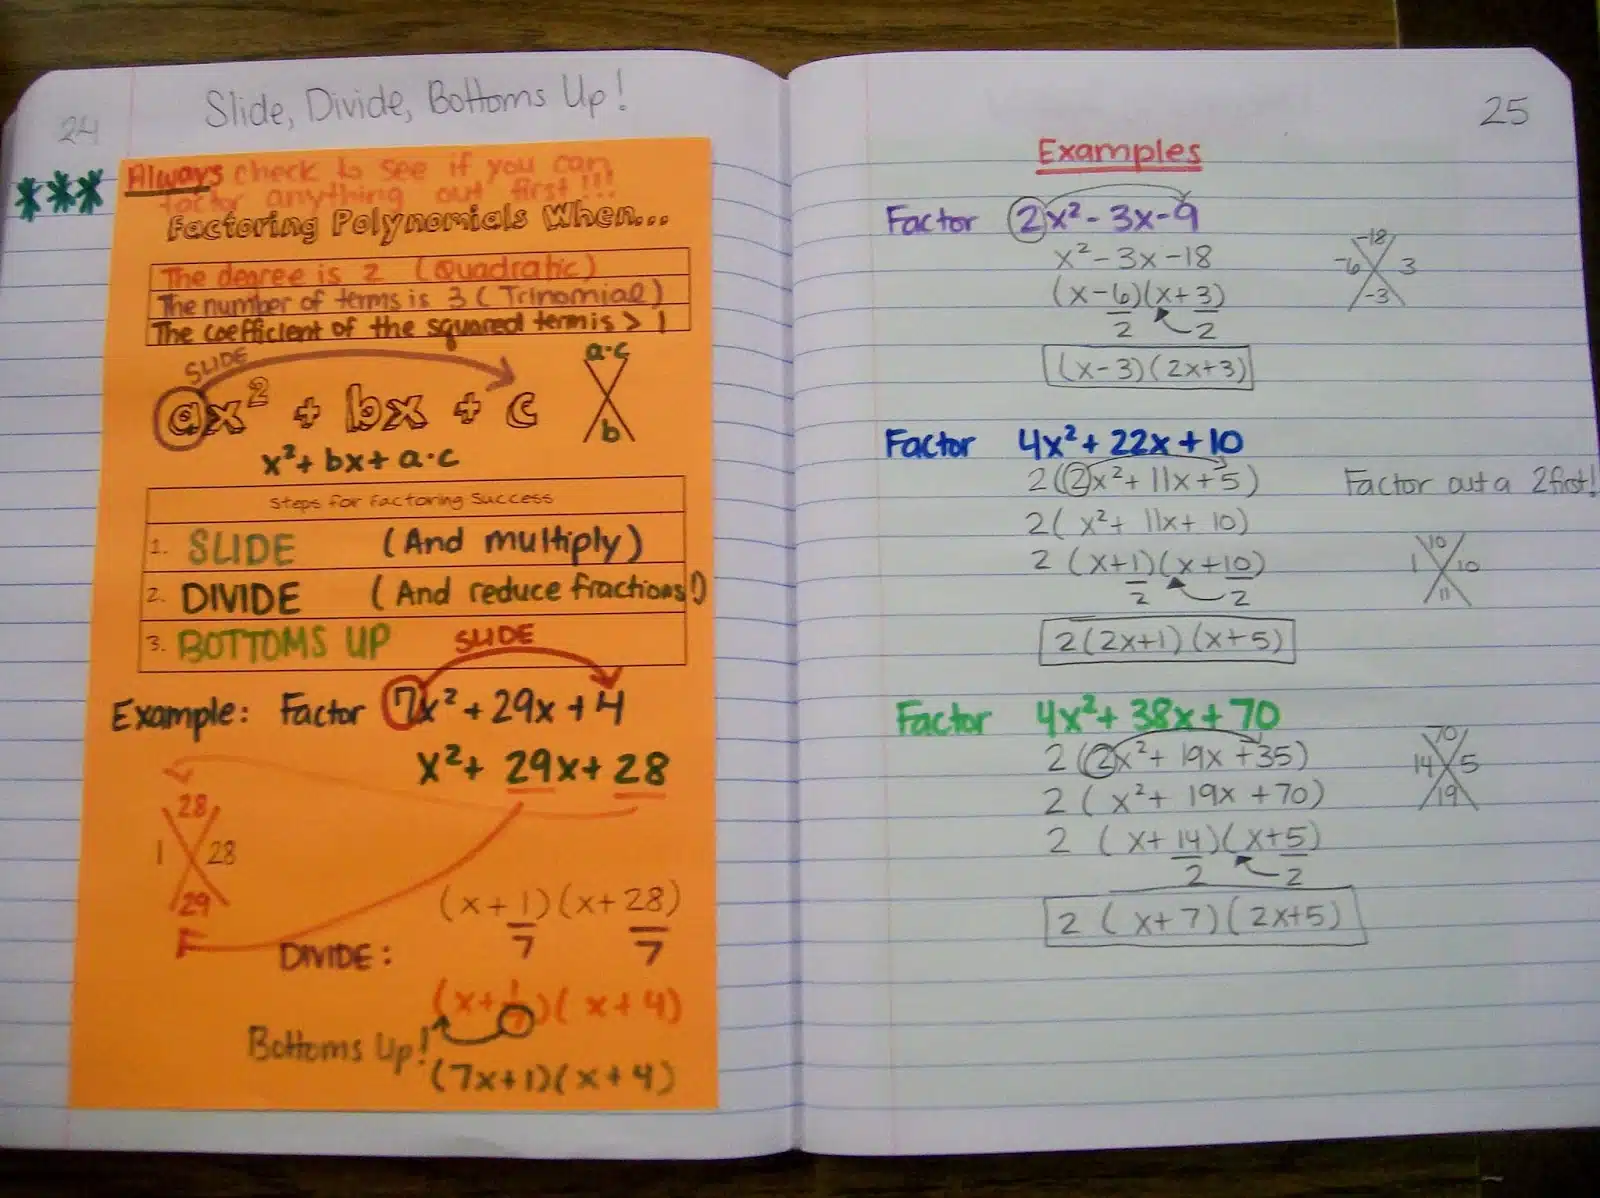 24
Slide, Divide, Bottoms Up!
*** Always check to see if you can
factor anything out first!!!
Factoring Polynomials When...
The degree is 2 (Quadratic)
The number of terms is 3 (Trinomial)
The coefficient of the squared term is > 1
SLIDE
ax² + bx + c
a·c
b
x² + bx + a·c
Steps for Factoring Success
1. SLIDE (And multiply)
2. DIVIDE (And reduce fractions!)
3. BOTTOMS UP
SLIDE
Example: Factor 7x² + 29x + 4
x² + 29x + 28
28
1 28
29
(x + 1/7)(x + 28/7)
DIVIDE:
(x + 1/7)(x + 4)
Bottoms Up!
(7x+1)(x+4)
25
Examples
Factor 2x² - 3x - 9
x² - 3x - 18
(x - 6/2)(x + 3/2)
(x-3)(2x+3)
-18
-6 3
-3
Factor 4x² + 22x + 10
2(2x² + 11x + 5) Factor out a 2 first!
2(x² + 11x + 10)
2(x + 1/2)(x + 10/2)
2(2x+1)(x+5)
10
1 10
11
Factor 4x² + 38x + 70
2(2x² + 19x + 35)
2(x² + 19x + 70)
2(x + 14/2)(x + 5/2)
2(x+7)(2x+5)
70
14 5
19